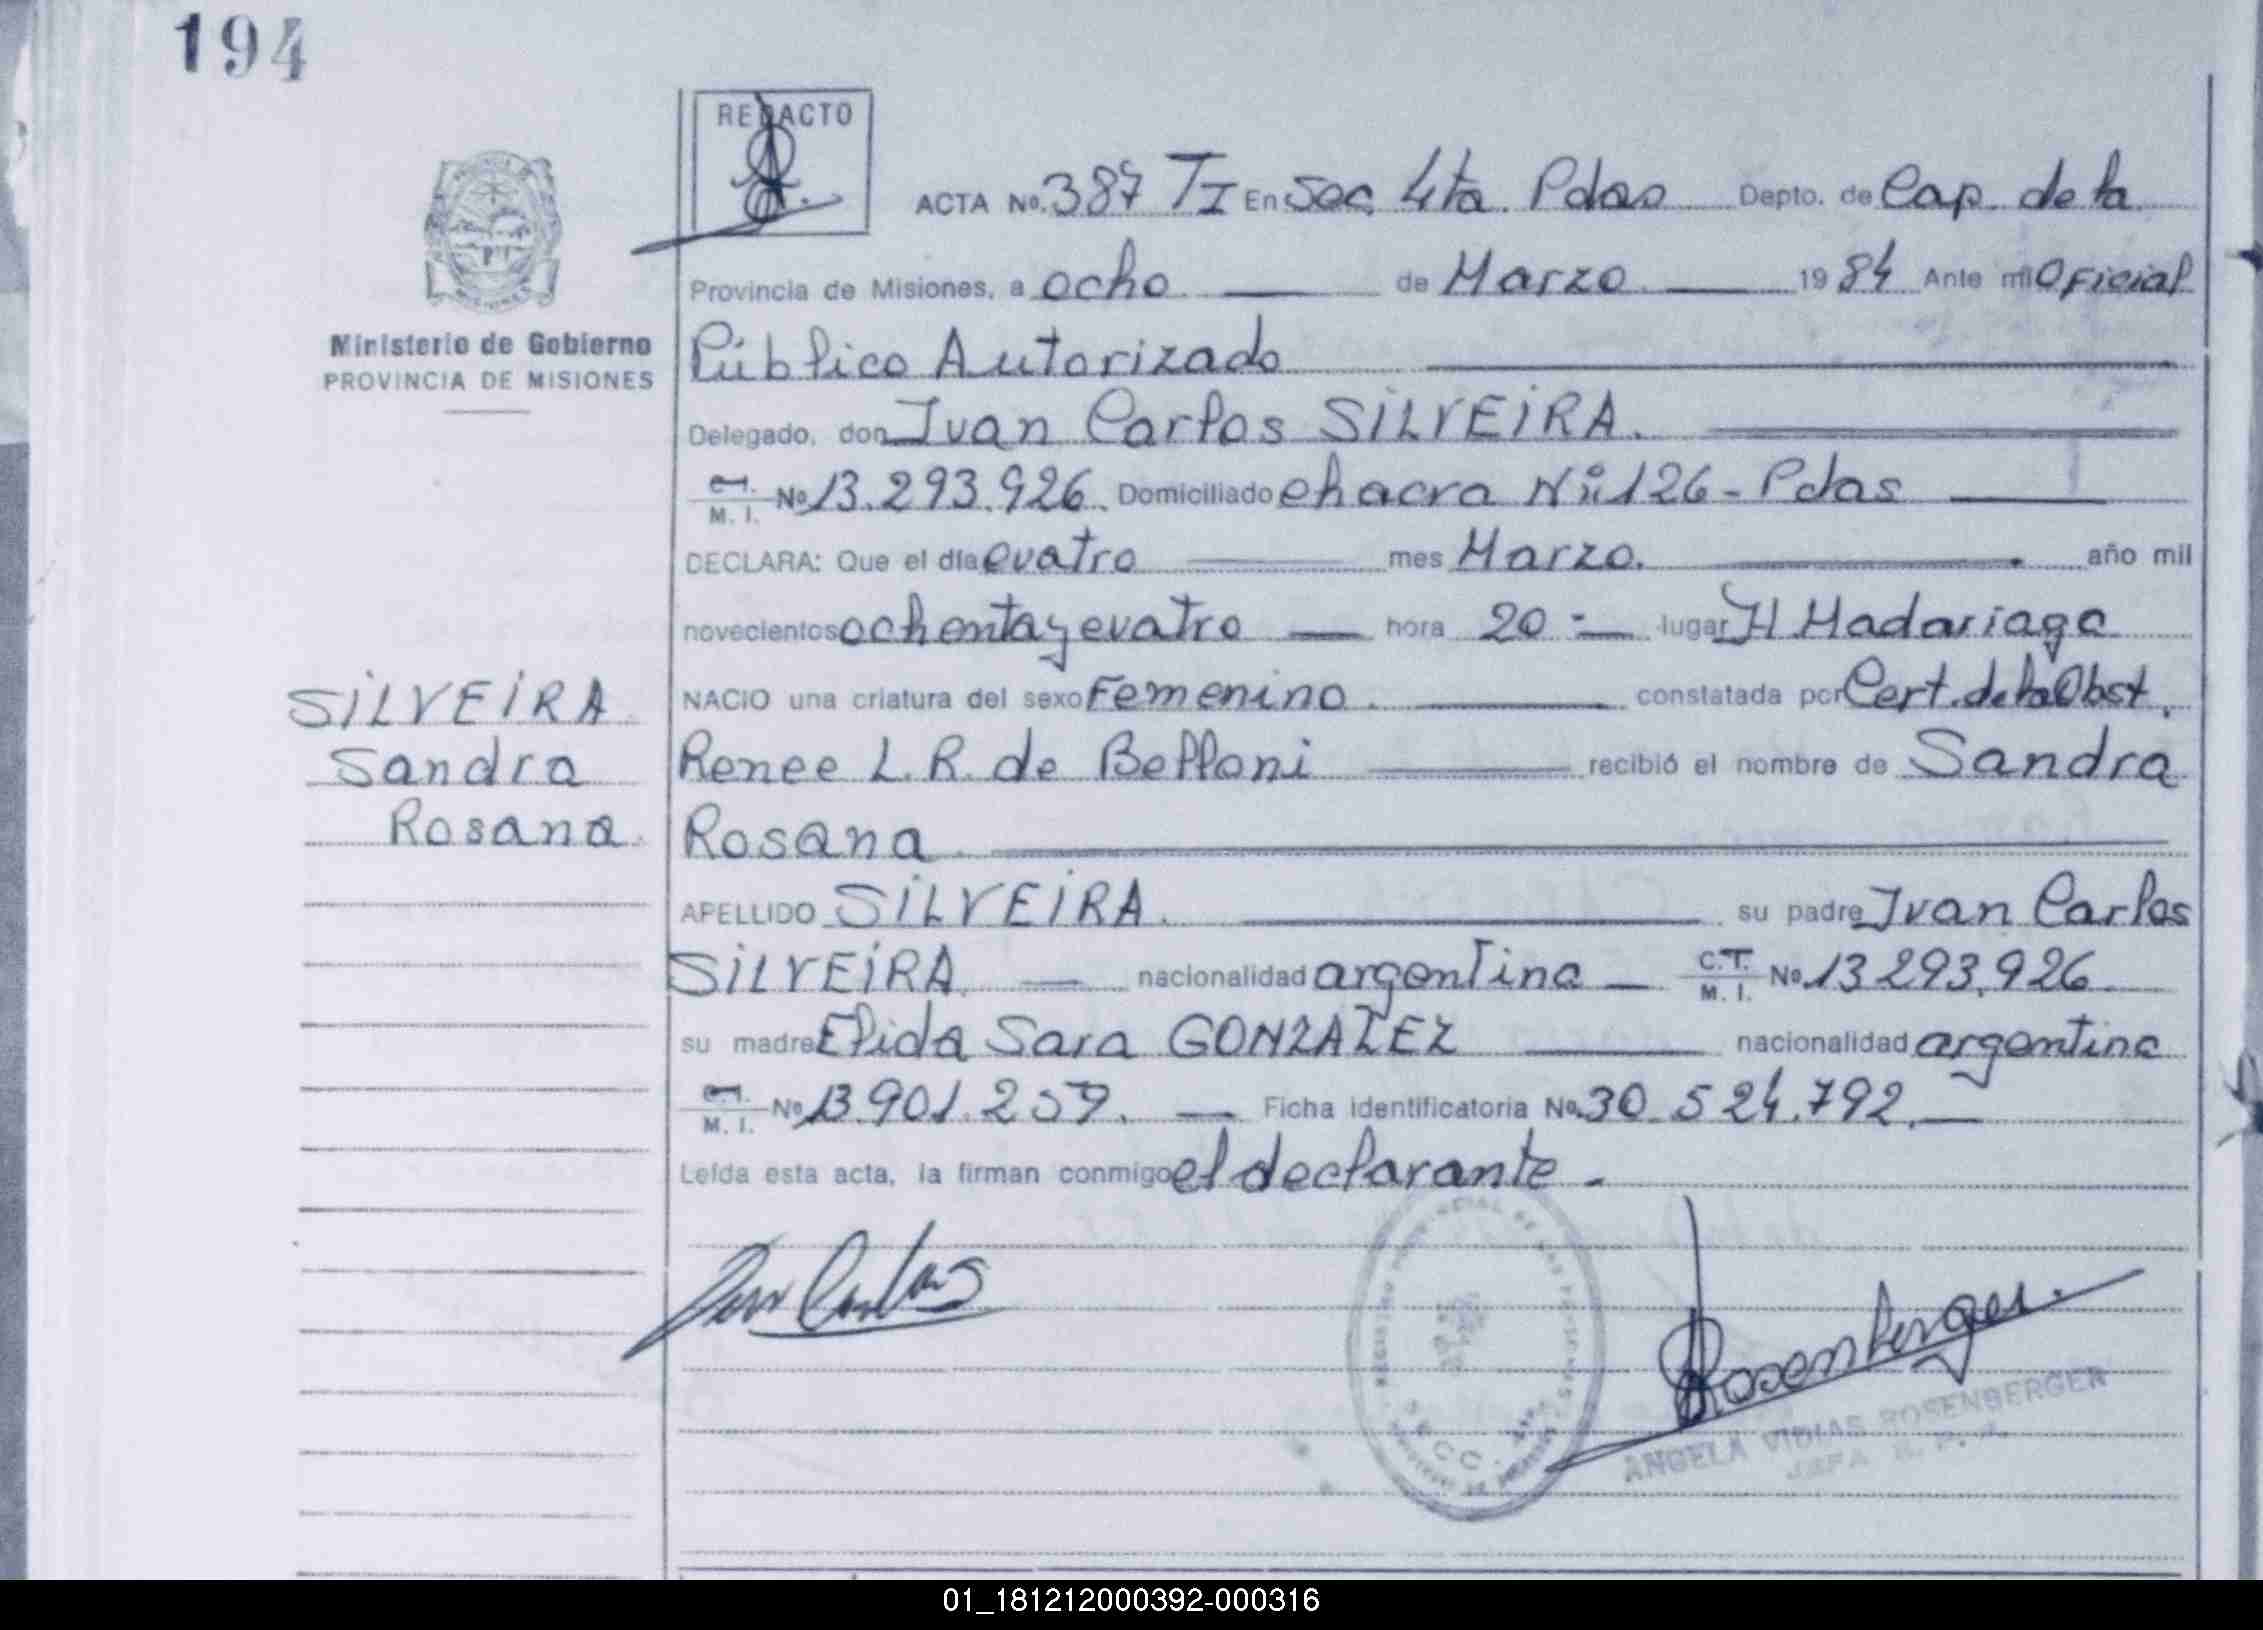 194
REDACTO
ACTA Nº. 387 TI En Sec. 4ta. Pdas Depto. de Cap. de la
Provincia de Misiones, a ocho de Marzo 19 84 Ante mi Oficial
Público Autorizado
Ministerio de Gobierno
PROVINCIA DE MISIONES
Delegado, don Ivan Carlos SILVEIRA.
C.I. M. I. Nº 13.293.926. Domiciliado Chacra Nº 126 - Pdas
DECLARA: Que el día cuatro mes Marzo. año mil
novecientos ochenta y cuatro hora 20 :- lugar H. Madariaga
NACIO una criatura del sexo Femenino. constatada por Cert. de la Obst.
Renee L. R. de Belloni recibió el nombre de Sandra
Rosana
SILVEIRA
Sandra
Rosana
APELLIDO SILVEIRA. su padre Ivan Carlos
SILVEIRA. nacionalidad argentina C.I. M. I. Nº 13 293.926
su madre Elida Sara GONZALEZ nacionalidad argentina
C.I. M. I. Nº 13.901.259. Ficha identificatoria Nº. 30.524.792.
Leída esta acta, la firman conmigo el declarante.
Ivan Carlos
Rosenberger
ANGELA VIDIAS ROSENBERGER
JEFA
01_181212000392-000316